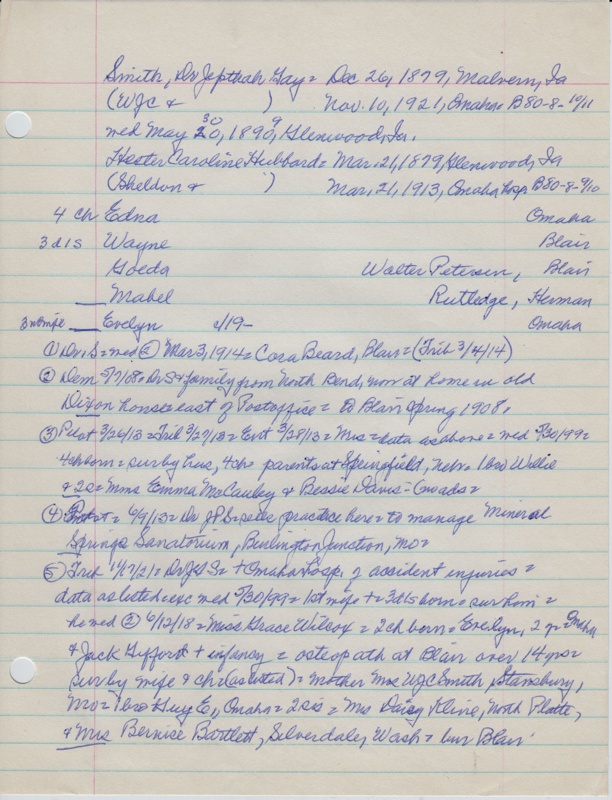 Smith, Dr Jepthah Gay = Dec 26, 1879, Malvern, Ia
(WJC & ) Nov. 10, 1921, Omaha = B80-8-10/11
wed May 30, 1899, Glenwood, Ia.
Hester Caroline Hubbard = Mar. 21, 1879, Glenwood, Ia
(Sheldon & ) Mar. 21, 1913, Omaha Hosp. B80-8-9/10
4 ch Edna Omaha
3 d 1 s Wayne Blair
Goeda Walter Petersen, Blair
Mabel Rutledge, Herman
Evelyn c/19- Omaha
① Dr. S = wed ② Mar 3, 1914 = Cora Beard, Blair = (Trib 3/4/14)
② Dem 5/7/08 = Dr S & family from North Bend, now at home in old
Dixon house east of Postoffice = to Blair Spring 1908.
③ Pilot 3/26/13 = Trib 3/27/13 = Ent 3/28/13 = Mrs = data as above = wed 5/30/99 =
4 ch born = sur by hus, 4 ch = parents at Springfield, Nebr. 1 bro Willie
& 2 s = Mmes Emma McCauley & Bessie Davis =
④ = 6/9/13 = Dr JP S = sells practice here = to manage Mineral
Springs Sanatorium, Burlington Junction, Mo =
⑤ Trib 11/17/21 = Dr JG S = + Omaha Hosp. of accident injuries =
data as listed = exc wed 5/30/99 = 1st wife + = 3 d 1 s born = sur him =
he wed ② 6/12/18 = Miss Grace Wilcox = 2 ch born = Evelyn, 2 y = Omaha
& Jack Gifford + infancy = osteopath at Blair over 14 yrs =
sur by wife & ch (as listed) = mother Mrs WJC Smith, Stansbury,
Mo = 1 bro Guy E., Omaha = 2 sis = Ms Daisy Kline, North Platte,
& Mrs Bernice Bartlett, Silverdale, Wash = bur Blair